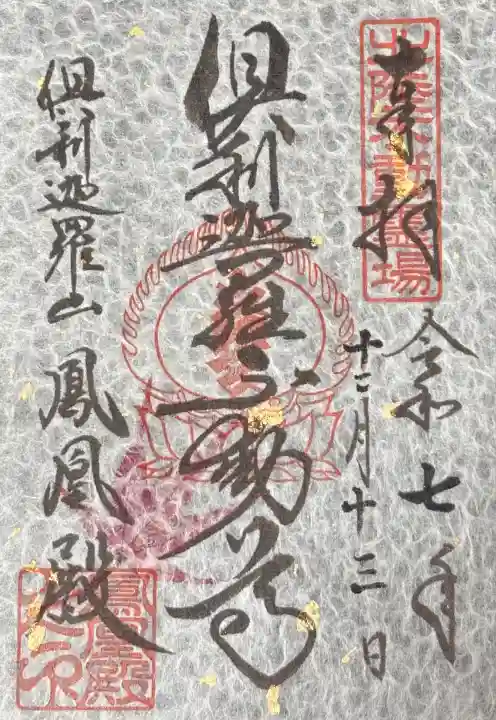 奉拝
北陸不動霊場
令和七年
十二月十三日
倶利迦羅不動尊
倶利迦羅山 鳳凰殿
鳳凰殿